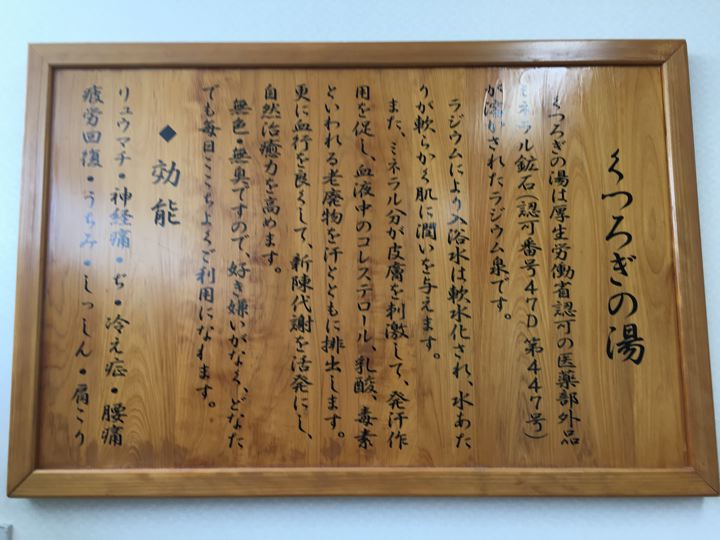 くつろぎの湯
くつろぎの湯は厚生労働省認可の医薬部外品
ミネラル鉱石(認可番号47D第447号)
が濾りされたラジウム泉です。
ラジウムにより入浴水は軟水化され、水あた
りが軟らかく肌に潤いを与えます。
また、ミネラル分が皮膚を刺激して、発汗作
用を促し、血液中のコレステロール、乳酸、毒素
といわれる老廃物を汗とともに排出します。
更に血行を良くして、新陳代謝を活発にし、
自然治癒力を高めます。
無色・無臭ですので、好き嫌いがなく、どなた
でも毎日ここちよくご利用になれます。
◆効能
リュウマチ・神経痛・ぢ・冷え症・腰痛
疲労回復・うちみ・しっしん・肩こり